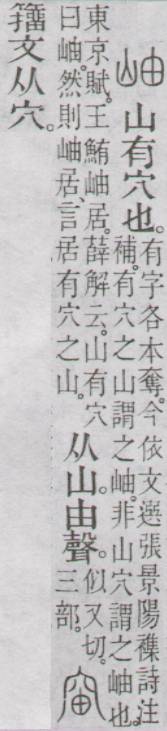 岫 山有穴也。有字各本奪。今依文選張景陽襍詩注
補。有穴之山謂之岫。非山穴謂之岫也。
東京賦。王鮪岫居。薛解云。山有穴
曰岫。然則岫居、言居有穴之山。
从山由聲。似又切。
三部。
籒文从穴。